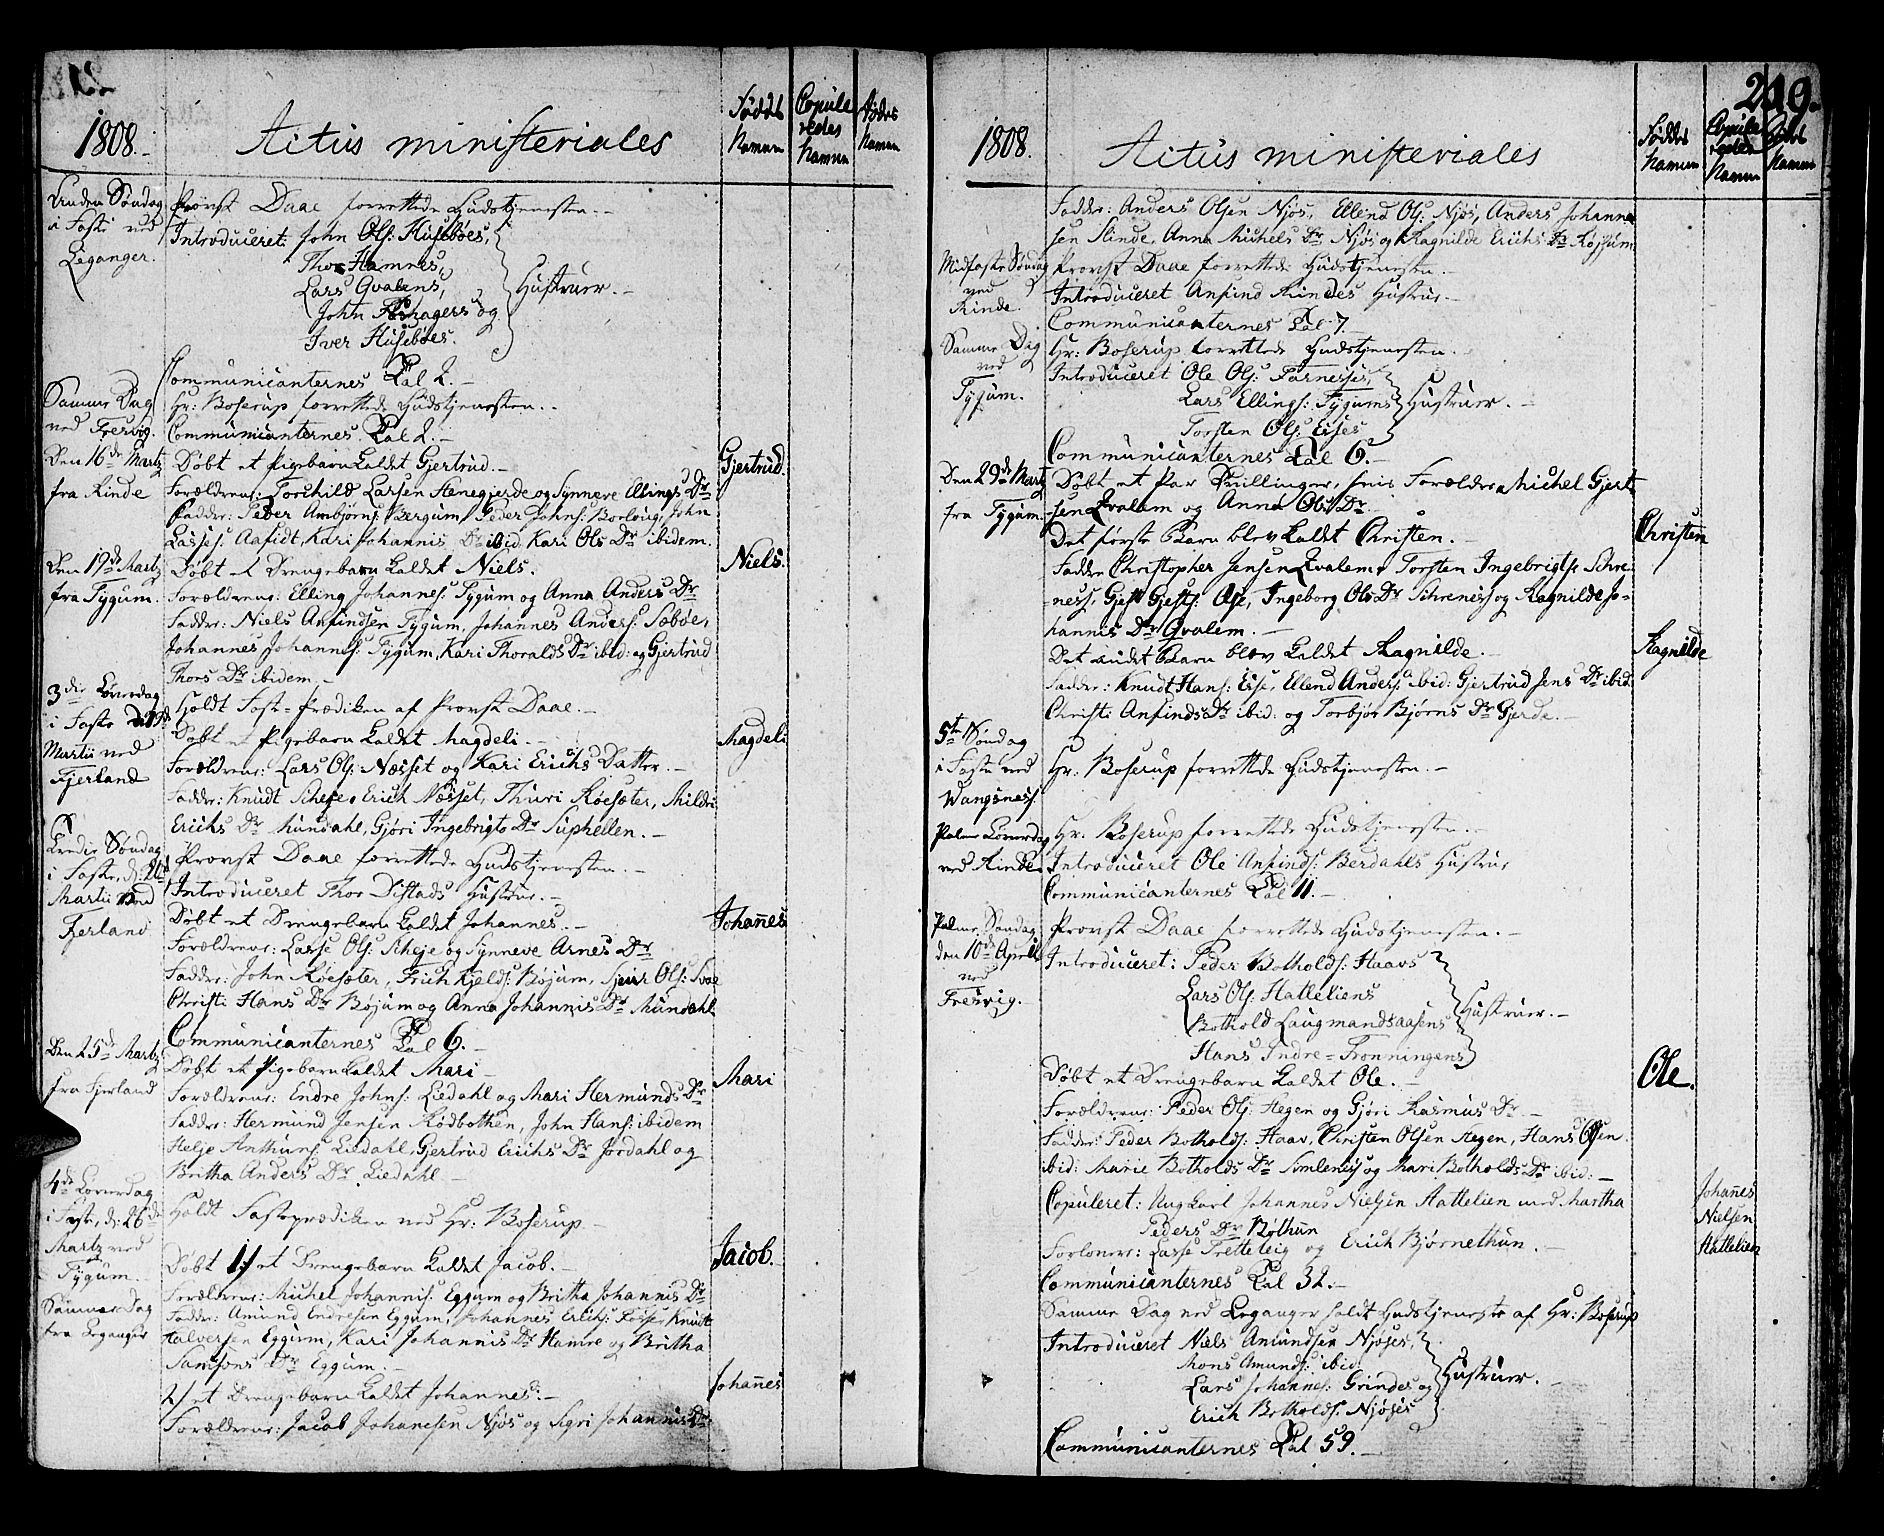 1808.
Actus ministeriales
Føddes Namen
Copuleredes Namen
Dødes Namen
Anden Søndag
i Faste ved
Leganger.
Provst Daae forrettede Gudstjenesten.
Introduceret: John Ols: Husebøes,
Thor Hamnes,
Lars Qvalens,
John Rinagers og
Iver Husebøes.
Hustruer.
Communicanternes Tal 2.
Samme Dag
ved Fresvig.
Hr: Boserup forrettede Gudstjenesten.
Communicanternes Tal 2.
Den 16de Martz
fra Rinde
Døbt et Pigebarn kaldet Gjertrud.
Gjertrud.
Forældrene: Torchild Larsen Henegjerde og Synneve Ellings Dr
Fadder: Peder Ambjørns: Bergum, Peder Johns: Borlaug, John
Lasses: Aafidt, Kari Johannis Dr ibid. Kari Ols Dr ibidem.
Den 19de Martz
fra Tygum.
Døbt et Drengebarn kaldet Niels.
Niels.
Forældrene: Elling Johannes: Tygum og Anna Anders Dr
Fadder: Niels Anfindsen Tygum, Johannes Anders: Sæbøe,
Johannes Johannes: Tygum, Kari Thoralds Dr ibid: og Gjertrud
Thors Dr ibidem.
3die Løverdag
i Faste d: 19de
Martii ved
Fjerland
Holdt Faste-Prædiken af Provst Daae.
Døbt et Pigebarn kaldet Magdeli.
Magdeli
Forældrene: Lars Ols: Næsset og Kari Erichs Datter.
Fadder: Knudt Scheje, Erich Næsset, Thuri Røesæter, Mildri
Erichs Dr Mundahl, Gjøri Ingebrigts Dr Suphellen.
Tredie Søndag
i Faste, d: 20de
Martii ved
Fjerland
Provst Daae forrettede Gudstjenesten.
Introduceret Thor Distads Hustrue.
Døbt et Drengebarn kaldet Johannes.
Johañes
Forældrene: Lasse Ols: Scheje og Synneve Arnes Dr
Fadder: John Røesæter, Erich Kjelds: Bøjum, Ols:
Christi Hans Dr Bøjum og Anna Johannis Dr Mundahl
Communicanternes Tal 6.
Den 25de Martz
fra Fjerland
Døbt et Pigebarn kaldet Mari
Mari
Forældrene: Endre Johns: Liedahl og Mari Hermunds Dr
Fadder: Hermund Jensen Rødbotten, John Hans: ibidem
Helje Anthuns: Liedahl, Gjertrud Erichs Dr Jordahl og
Britha Anders Dr Liedahl.
4de Løverdag
i Faste, d: 26de
Martz ved
Tygum.
Holdt Fasteprædiken ved Hr: Boserup
Samme Dag
fra Leganger
Døbt 1) et Drengebarn kaldet Jacob.
Jacob.
Forældrene: Michel Johannis: Eggum og Britha Johannis Dr
Fadder: Amund Endresen Eggum, Johannes Erichs: Fosse, Knudt
Halversen Eggum, Kari Johannis Dr Hamre og Britha
Samsons Dr Eggum.
2) et Drengebarn kaldet Johannes.
Johañes
Forældrene: Jacob Johannesen Njøs og Sigri Johannis Dr
1808.
Actus ministeriales
210.
Føddes Namen
Copuleredes Namen
Dødes Namen
Fadder: Anders Olsen Njøs, Ellend Ols: Njøs, Anders Johanne
sen Slinde, Anna Michels Dr Njøs og Ragnilde Erichs Dr Røysum.
Midfaste Søndag
ved
Rinde.
Provst Daae forrettede Gudstjenesten.
Introduceret Anfind Rindes Hustrue.
Communicanternes Tal 7.
Samme Dag
ved
Tygum.
Hr: Boserup forrettede Gudstjenesten.
Introduceret Ole Ols: Farnesses,
Lars Ellings: Tygums
Torsten Ols: Eises
Hustruer.
Communicanternes Tal 6.
Den 29de Martz
fra Tygum.
Døbt et Par Tvillinger, hvis Forældre Michel Gjert-
sen Qvalem og Anna Ols Dr.
Det første Barn blev kaldet Christen.
Christen
Fadder Christopher Jensen Qvalem, Torsten Ingebrigts: Schre-
-ness, Gjest Gjests: Ese, Ingeborg Ols Dr Schreness og Ragnilde Jo-
hannis Dr Qvalem.
Det andet Barn blev kaldet Ragnilde.
Ragnilde
Fadder: Knudt Hans: Eise, Ellend Anders: ibid: Gjertrud Jens Dr ibid:
Christi Anfinds Dr ibid: og Torbjør Bjørns Dr Gjerde.
5te Søndag
i Faste ved
Wangsness.
Hr: Boserup forrettede Gudstjenesten.
Palme Løverdag
ved Rinde
Hr: Boserup forrettede Gudstjenesten.
Introduceret Ole Anfinds: Berdahls Hustrue,
Communicanternes Tal 11.
Palme Søndag
den 10de April
ved
Fresvig.
Provst Daae forrettede Gudstjenesten.
Introduceret: Peder Botholds: Haavs
Lars Ols: Hatteliens
Bothold Laugmandsaasens
Hans Indre-Frønningens
Hustruer.
Døbt et Drengebarn kaldet Ole.
Ole.
Forældrene: Peder Ols: Hegen og Gjøri Rasmus Dr.
Fadder: Peder Botholds: Haav, Christen Olsen Hegen, Hans Olsen
ibid: Marie Botholds Dr Simlenes og Mari Botholds Dr ibid:
Copuleret: Ungkarl Johannes Nielsen Hattelien med Martha
Peders Dr Bøthun
Johañes
Nielsen
Hattelien
Forlovere: Lasse Tretteteig og Erich Bjørnethun.
Communicanternes Tal 32.
Samme Dag ved Leganger holdt Gudstjeneste af Hr: Boserup
Introduceret Niels Amundsen Njøses,
Mons Amunds: ibid
Lars Johannes: Grindes og
Erich Botholds: Njøses
Hustruer.
Communicanternes Tal 59.